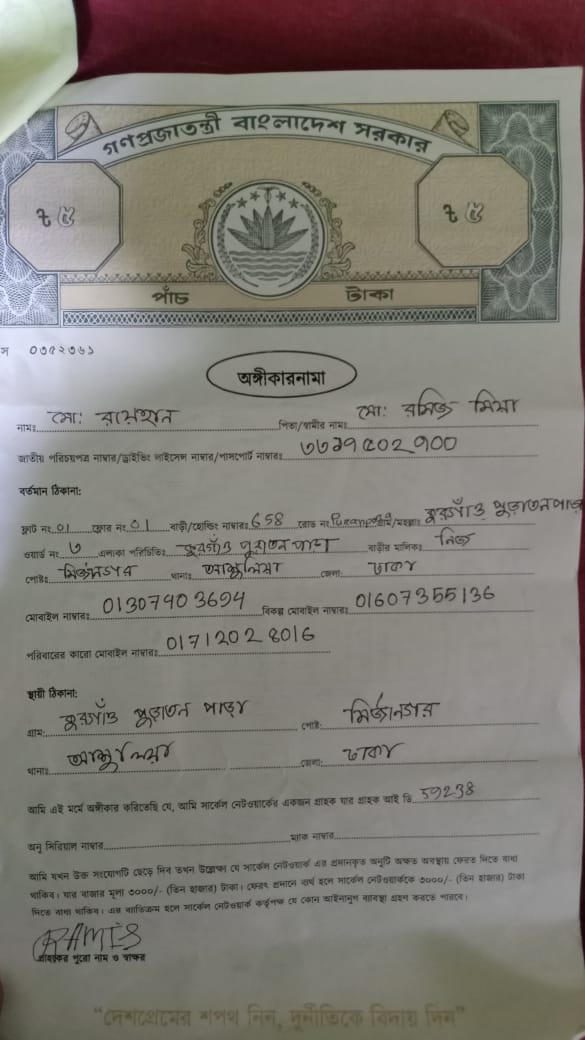 গণপ্রজাতন্ত্রী বাংলাদেশ সরকার
৳ ৫ ৳ ৫
পাঁচ টাকা
স ০৩৫২৩৬১
অঙ্গীকারনামা
নামঃ মো: রায়েহান পিতা/স্বামীর নামঃ মো: রমিজ মিয়া
জাতীয় পরিচয়পত্র নাম্বার/ড্রাইভিং লাইসেন্স নাম্বার/পাসপোর্ট নাম্বারঃ
বর্তমান ঠিকানা:
ফ্লাট নং 01 ফ্লোর নং 01 বাড়ী/হোল্ডিং নাম্বারঃ 658 রোড নং Puranpara গ্রাম/মহল্লাঃ পুরাতনপাড়া
ওয়ার্ড নং ৩ এলাকা পরিচিতিঃ পুরাতন পাড়া বাড়ীর মালিকঃ নিজ
পোষ্টঃ মির্জানগর থানাঃ আশুলিয়া জেলা: ঢাকা
মোবাইল নাম্বারঃ 01307903694 বিকল্প মোবাইল নাম্বারঃ 01607355136
পরিবারের কারো মোবাইল নাম্বারঃ 01712028016
স্থায়ী ঠিকানা:
গ্রাম: পুরাতন পাড়া পোষ্ট: মির্জানগর
থানাঃ আশুলিয়া জেলা: ঢাকা
আমি এই মর্মে অঙ্গীকার করিতেছি যে, আমি সার্কেল নেটওয়ার্কের একজন গ্রাহক যার গ্রাহক আই ডি 59238
অনু সিরিয়াল নাম্বার ম্যাক নাম্বার
আমি যখন উক্ত সংযোগটি ছেড়ে দিব তখন উল্লেক্ষ্য যে সার্কেল নেটওয়ার্ক এর প্রদানকৃত অনুটি অক্ষত অবস্থায় ফেরত দিতে বাধ্য
থাকিব। যার বাজার মূল্য ৩০০০/- (তিন হাজার) টাকা। ফেরৎ প্রদানে ব্যর্থ হলে সার্কেল নেটওয়ার্ককে ৩০০০/- (তিন হাজার) টাকা
দিতে বাধ্য থাকিব। এর ব্যতিক্রম হলে সার্কেল নেটওয়ার্ক কর্তৃপক্ষ যে কোন আইনানুগ ব্যবস্থা গ্রহণ করতে পারবে।
RAMIS
গ্রাহকের পুরো নাম ও স্বাক্ষর
“দেশপ্রেমের শপথ নিন, দুর্নীতিকে বিদায় দিন”